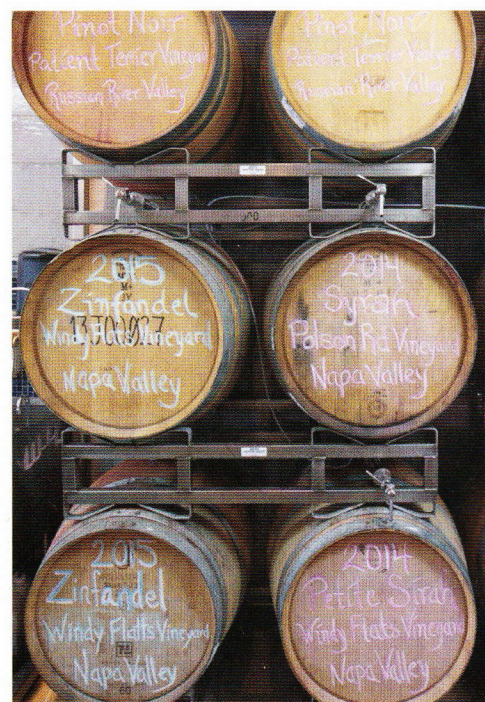 Pinot Noir
Patient Terrier Vineyard
Russian River Valley
Pinot Noir
Patient Terrier Vineyard
Russian River Valley
2015
Zinfandel
Windy Vineyard
Napa Valley
2014
Syrah
Polson Rd Vineyard
Napa Valley
2015
Zinfandel
Windy Flatts Vineyard
Napa Valley
2014
Petite Sirah
Windy Flats Vineyard
Napa Valley